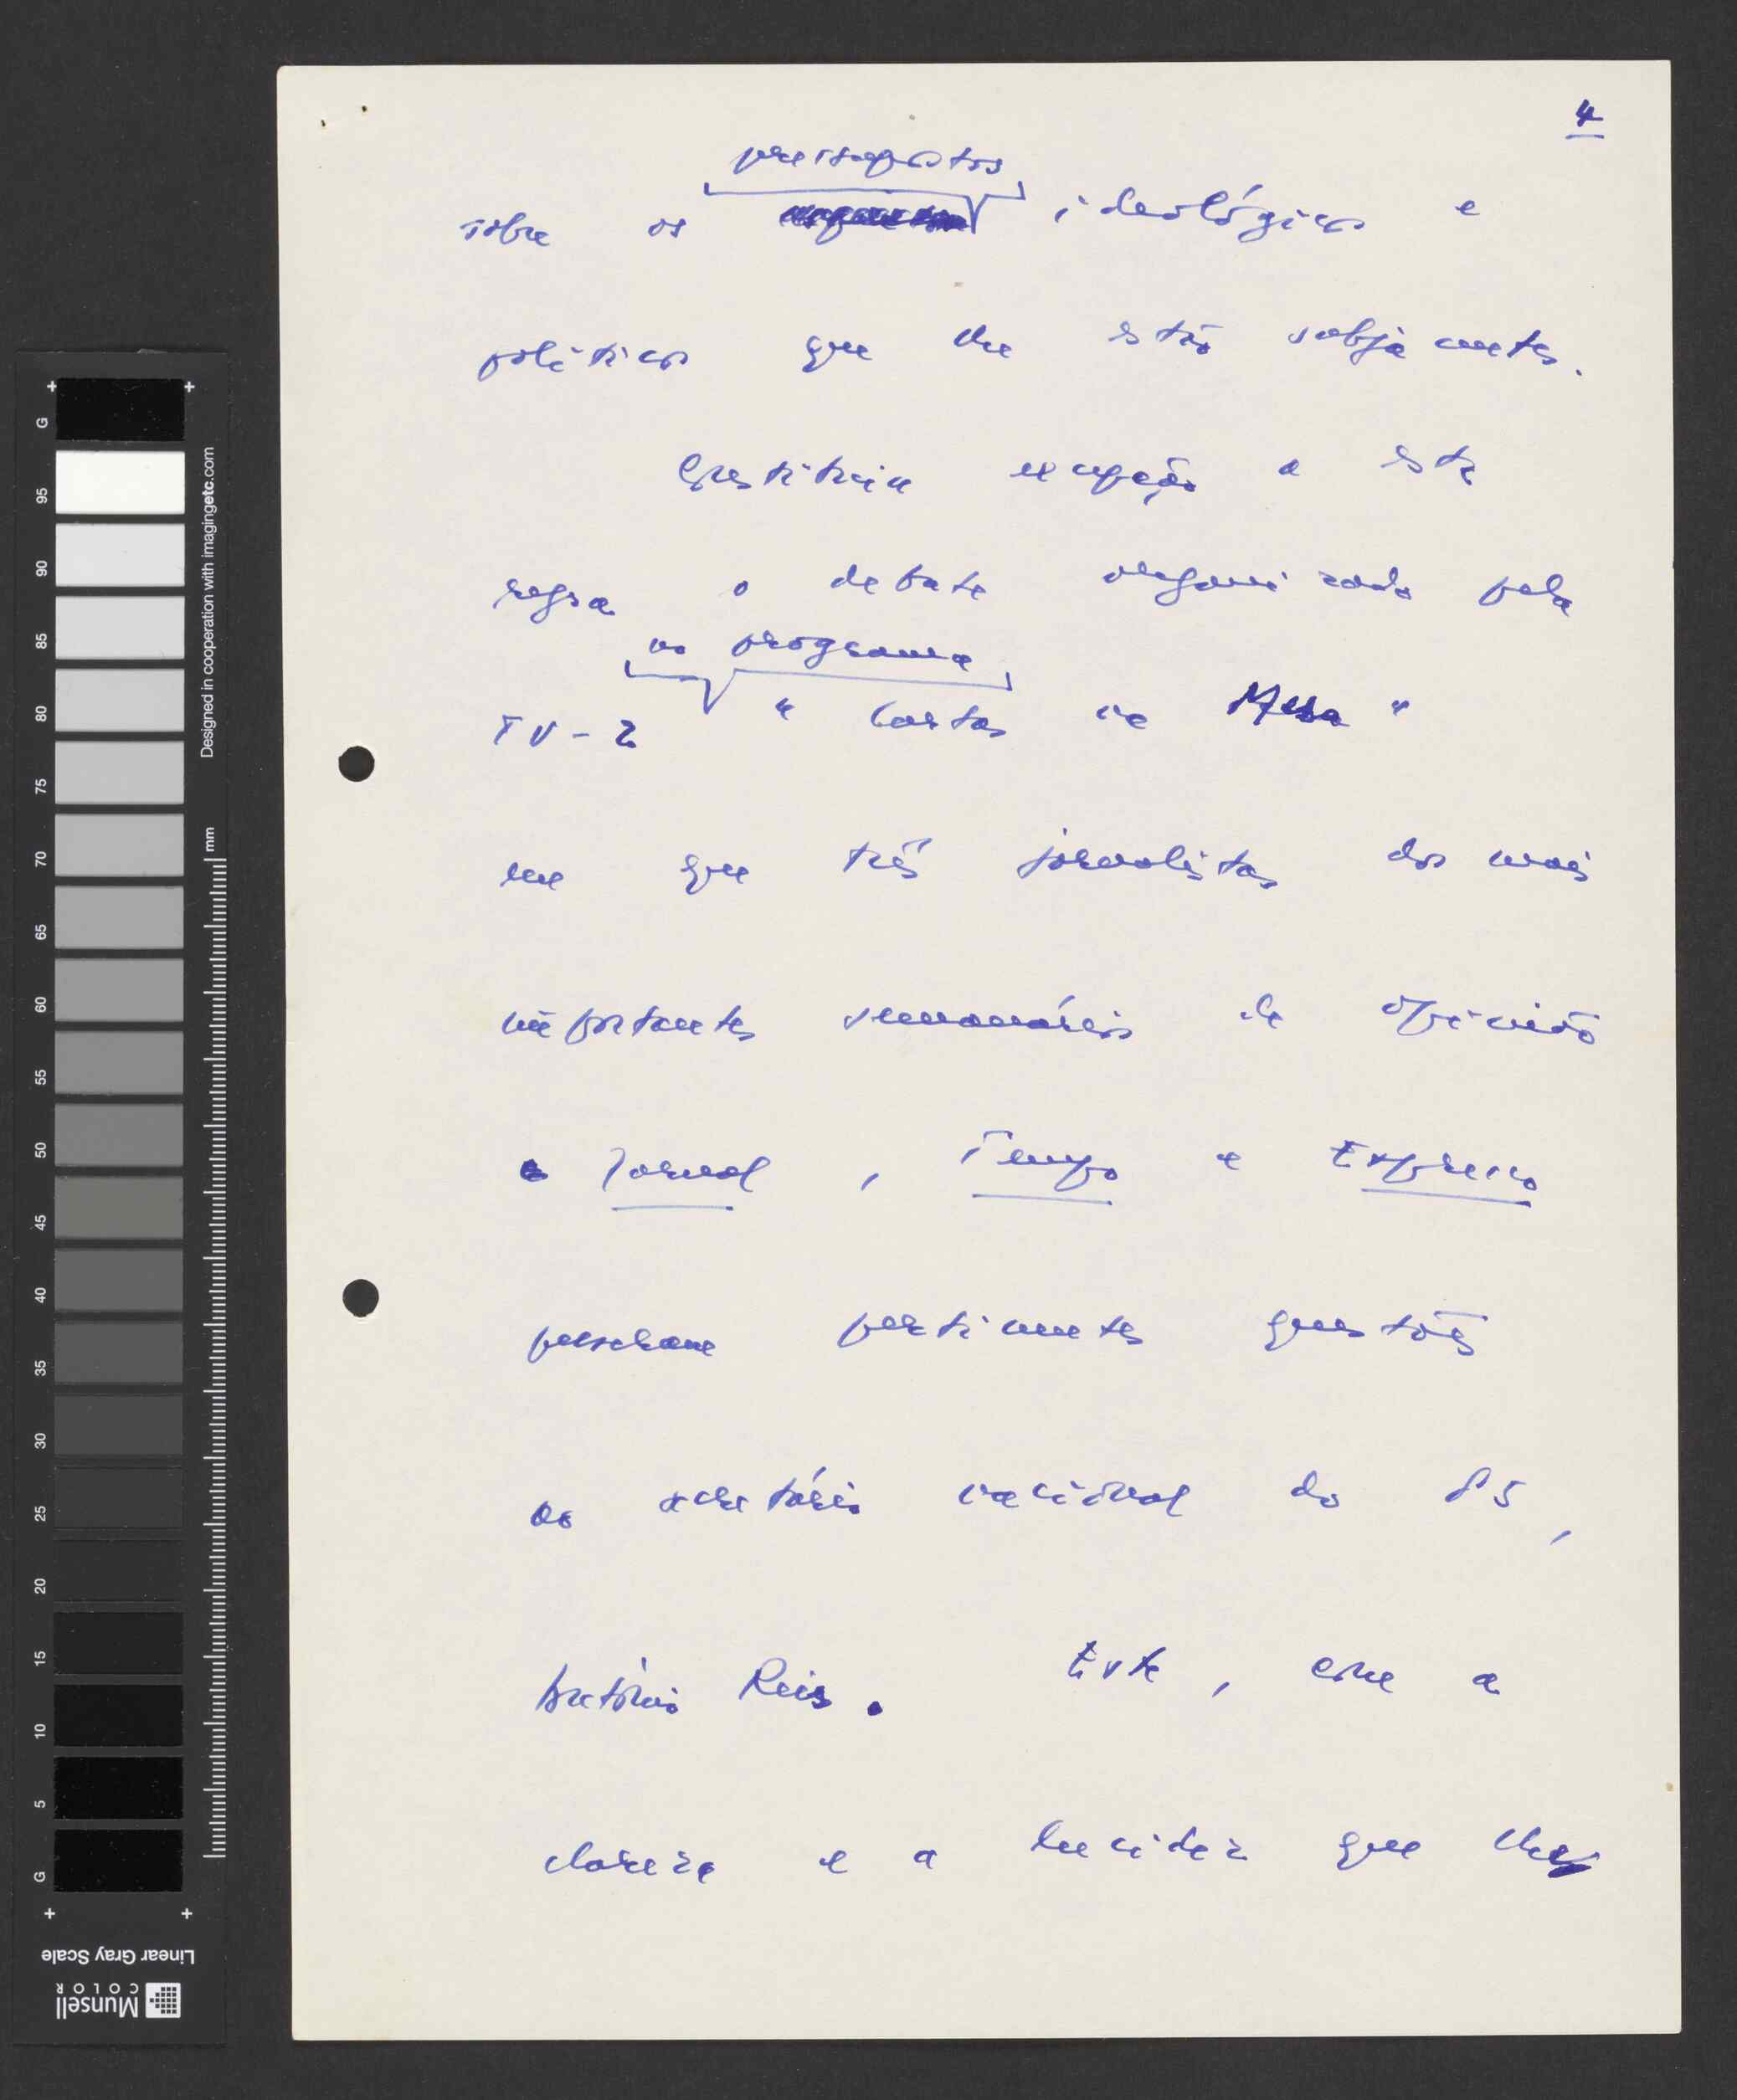 4
pressupostos
sobre os ideológicos e
políticos que lhe estão subjacentes.
Constituiu excepção a esta
regra o debate organizado pela
no programa
TV-2 "Cartas na Mesa"
em que três jornalistas dos mais
importantes semanários de opinião
o Jornal, Tempo e Expresso
puseram pertinentes questões
ao secretário nacional do PS,
António Reis. Este, com a
clareza e a lucidez que lhe
G 95 90 85 80 75 70 65 60 55 50 45 40 35 30 25 20 15 10 5 G
Designed in cooperation with imagingetc.com
mm
Linear Gray Scale
Munsell
COLOR